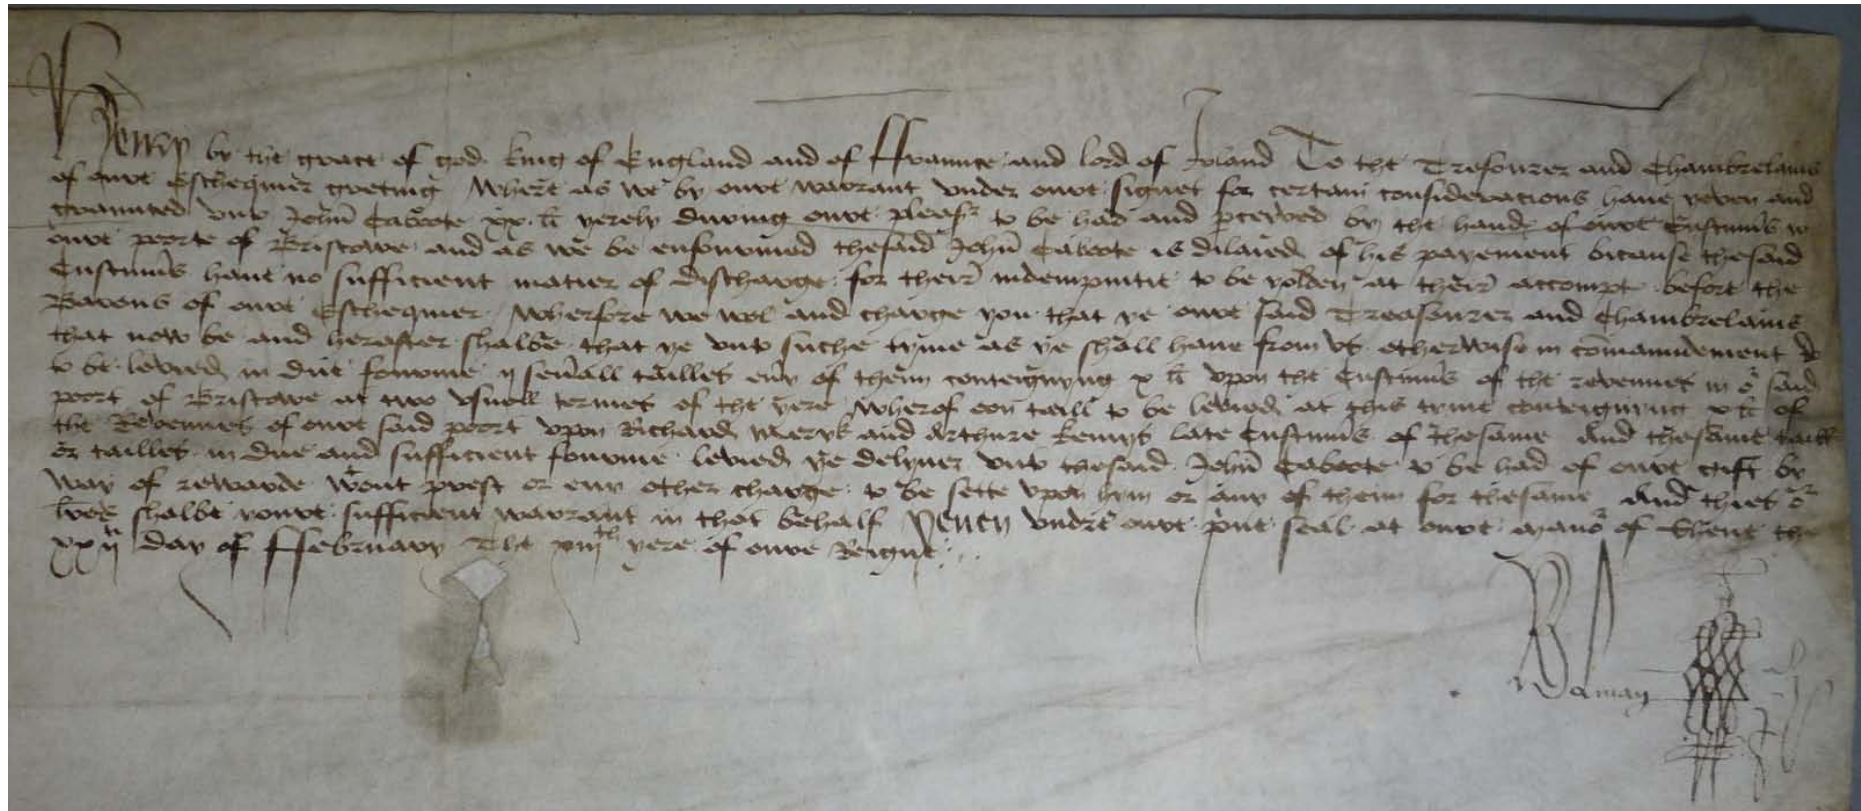 Henry by the grace of god king of England and of Ffraunce and lord of Irland To the Tresourer and Chambrelains
of oure Eschequier greting Where as we by oure warrant vnder oure signet for certain consideracions haue yeven and
graunted vnto John Caboote xx li yerely during oure pleasr to be had and pceyved by the hands of oure Custumers in
oure poorte of Bristowe and as we be enfourmed thesaid John Caboote is dilaied of his payement bicause thesaid
Custumers haue no sufficient matier of discharge for their indempnitie to be yolden at their accompt before the
Barons of oure Eschequier Wherfore we wol and charge you that ye oure said Treasourer and Chambrelains
that now be and herafter shalbe that ye vnto suche tyme as ye shall haue from vs otherwise in comaundement do
to be levied in due fourme ij seuall tailles eury of theim conteignyng x li vpon the Custumers of the revenues in or said
poort of Bristowe at two vsuell termes of the yere Wherof oon taill to be levied at this tyme conteignyng x li of
the Revenues of oure said poort vpon Richard Meryk and Arthure Kemys late Custumers of thesame And thesame taill
or tailles in due and sufficient fourme levied ye delyuer vnto thesaid John Caboote to be had of oure gift by
way of rewarde wtout prest or eny other charge to be sette vpon hym or any of theim for thesame And thies or
lres shalbe youre sufficient warrant in that behalf Yeuen vndre oure priue seal at oure manor of Shene the
xxij day of Ffebruary The xiijth yere of oure Reigne